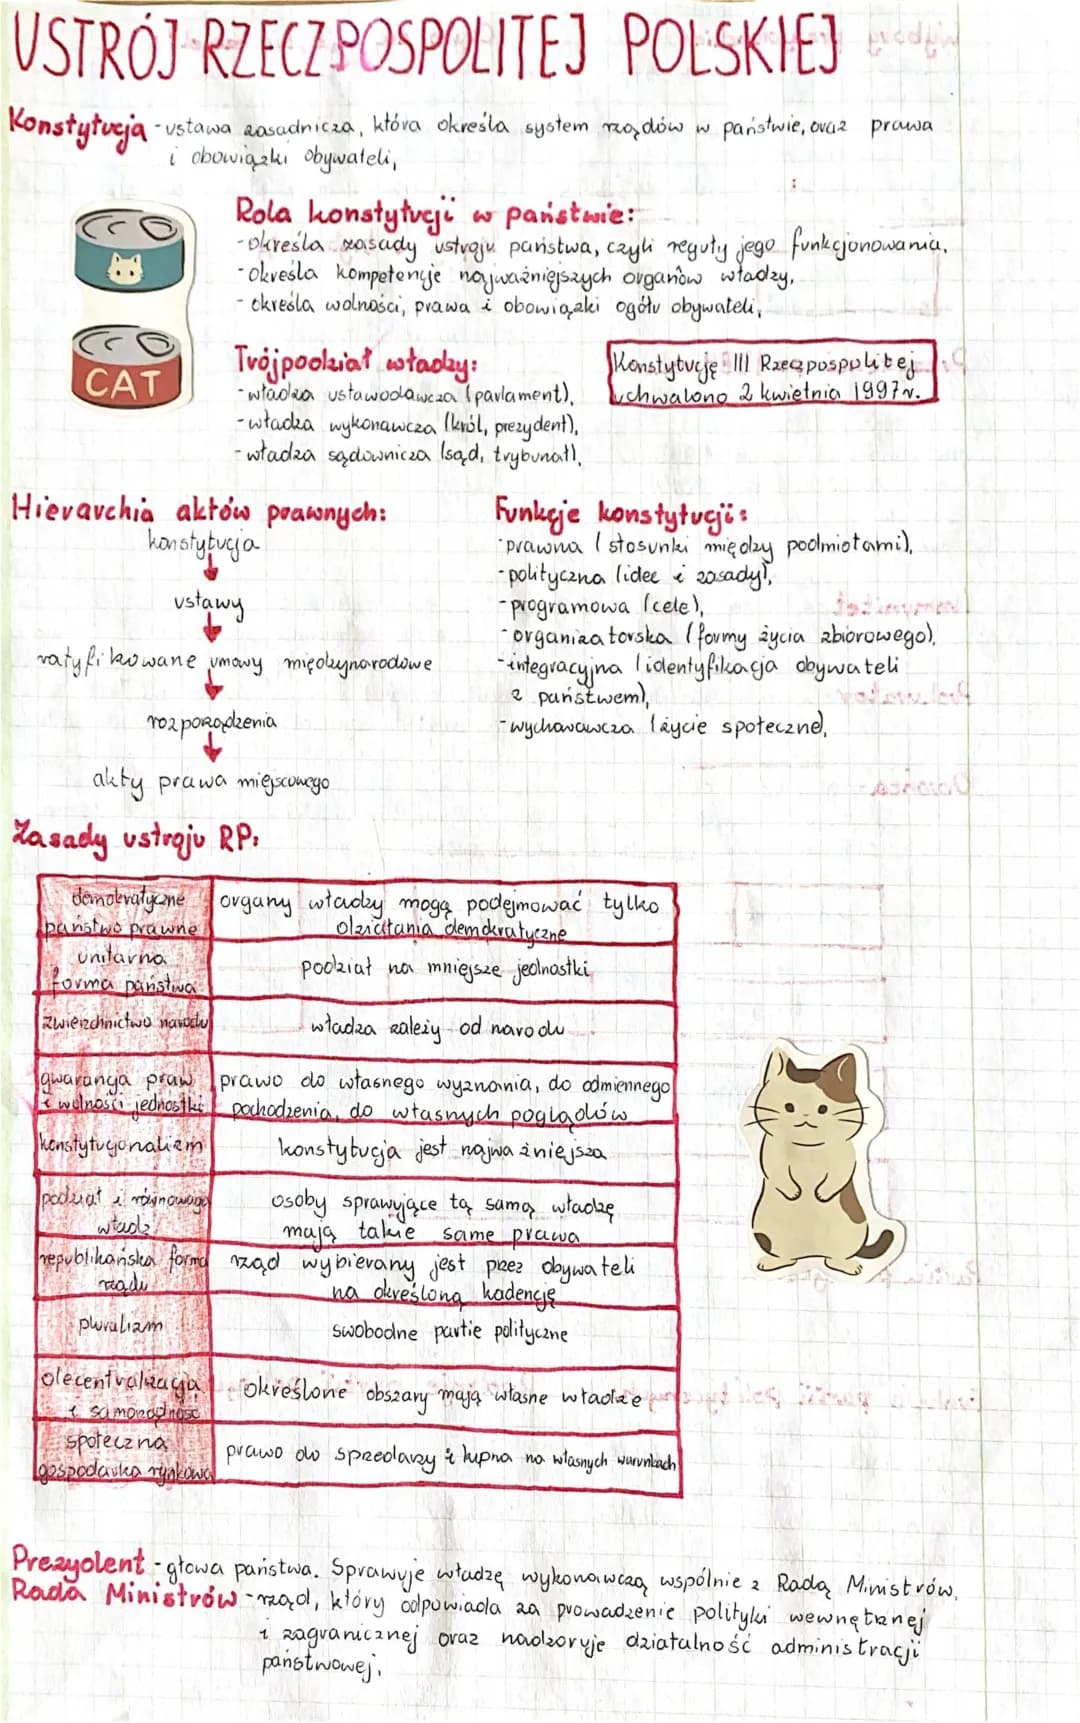 USTRÓJ RZECZPOSPOLITEJ POLSKIEJ
Konstytucja - ustawa zasadnicza, która określa system rządów w państwie, oraz prawa
i obowiązki obywateli,
Rola konstytucji w państwie:
- określa zasady ustroju państwa, czyli reguły jego funkcjonowania,
- określa kompetencje najważniejszych organów władzy,
- określa wolności, prawa i obowiązki ogółu obywateli,
CAT
Trójpodział władzy:
- władza ustawodawcza (parlament),
- władza wykonawcza (król, prezydent),
- władza sądownicza (sąd, trybunał),
Konstytucję III Rzeczpospolitej
uchwalono 2 kwietnia 1997r.
Hierarchia aktów prawnych:
konstytucja
ustawy
ratyfikowane umowy międzynarodowe
rozporządzenia
akty prawa miejscowego
Funkcje konstytucji:
- prawna (stosunki między podmiotami),
- polityczna (idee i zasady),
- programowa (cele),
- organizatorska (formy życia zbiorowego),
- integracyjna (identyfikacja obywateli
z państwem),
- wychowawcza (życie społeczne),
Zasady ustroju RP:
demokratyczne
państwo prawne
organy władzy mogą podejmować tylko
działania demokratyczne
unitarna
forma państwa
podział na mniejsze jednostki
zwierzchnictwo narodu
władza zależy od narodu
gwarancja praw
i wolności jednostki
prawo do własnego wyznania, do odmiennego
pochodzenia, do własnych poglądów
konstytucjonalizm
konstytucja jest najważniejsza
podział i równowaga
władz
osoby sprawujące tą samą władzę
mają takie same prawa
republikańska forma
rządu
rząd wybierany jest przez obywateli
na określoną kadencję
pluralizm
swobodne partie polityczne
decentralizacja
i samorządność
określone obszary mają własne władze
społeczna
gospodarka rynkowa
prawo do sprzedaży i kupna na własnych warunkach
Prezydent - głowa państwa. Sprawuje władzę wykonawczą wspólnie z Radą Ministrów,
Rada Ministrów - rząd, który odpowiada za prowadzenie polityki wewnętrznej
i zagranicznej oraz nadzoruje działalność administracji
państwowej,